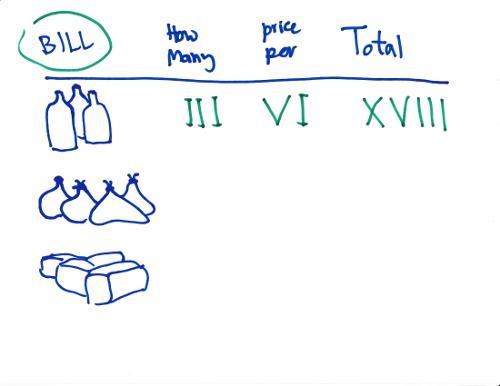 BILL How Many price per Total
III VI XVIII